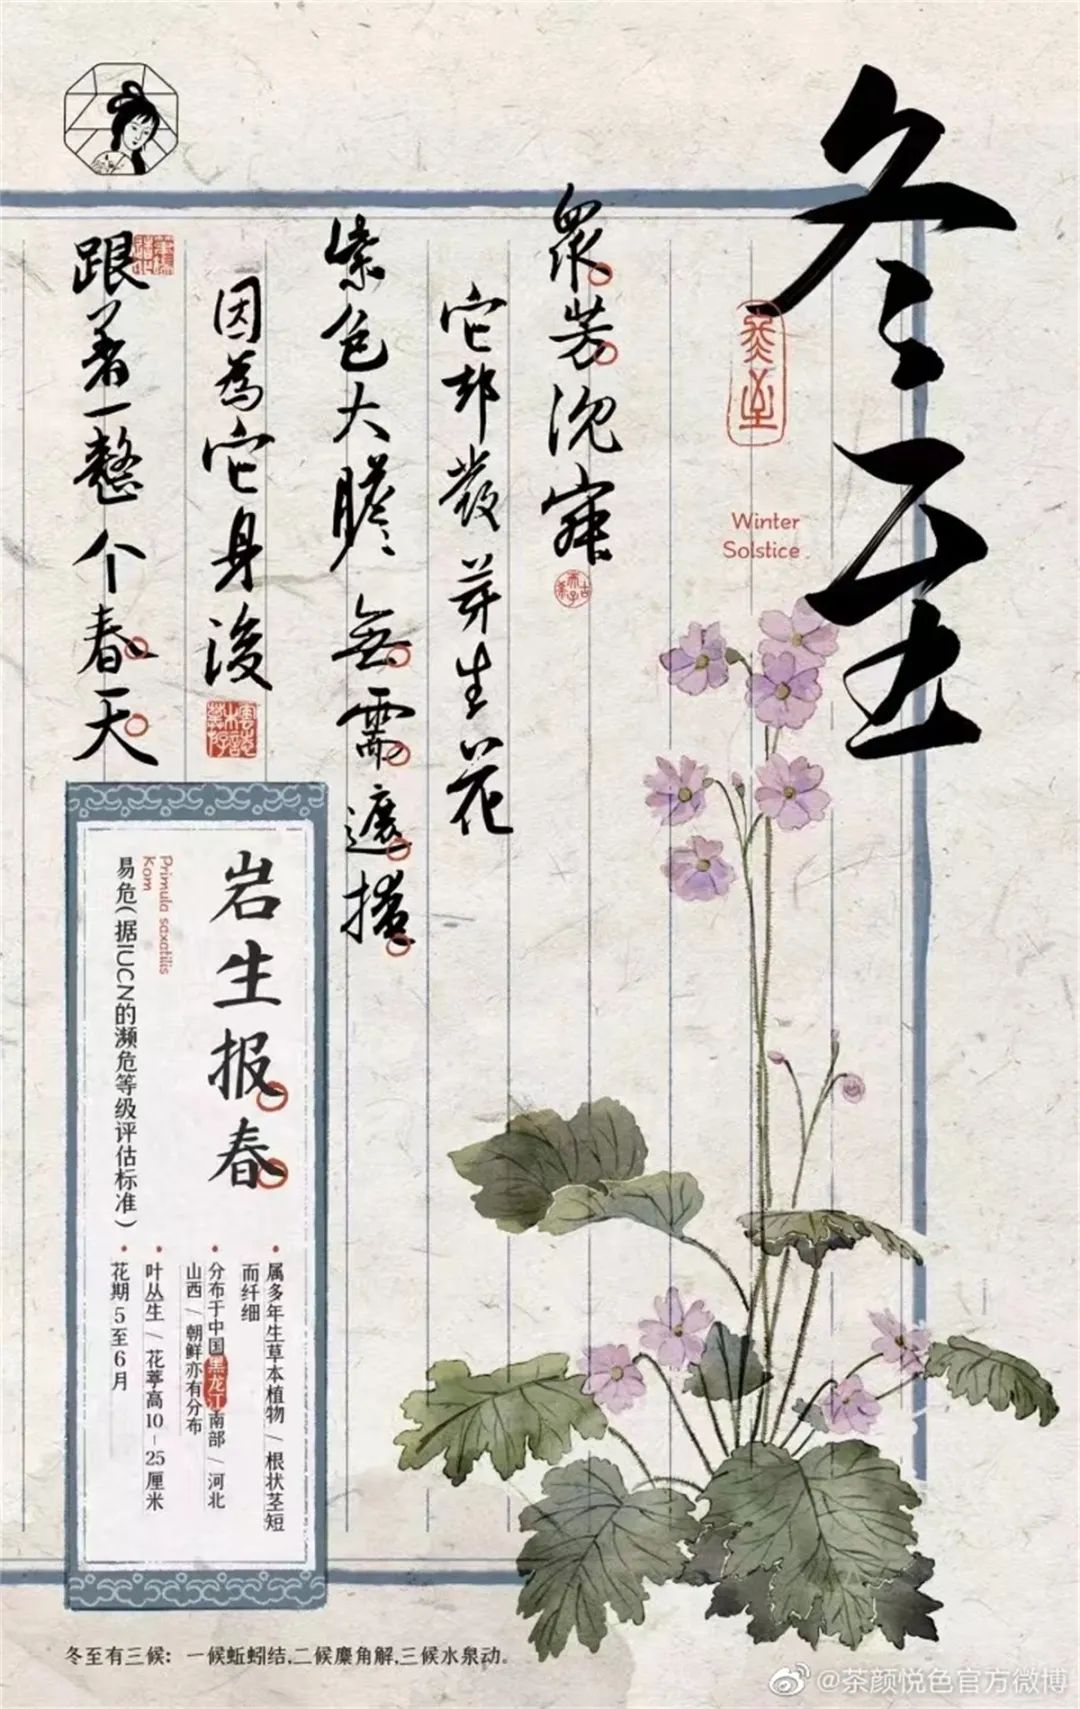 冬至
Winter
Solstice
眾芳沉寐
它卻發芽生花
紫色大膽 無需遮掩
因為它身後
跟着一整個春天
岩生报春
Primula saxatilis
Kom
易危（据IUCN的濒危等级评估标准）
·属多年生草本植物／根状茎短
而纤细
·分布于中国黑龙江南部／河北
山西／朝鲜亦有分布
·叶丛生／花葶高10-25厘米
·花期5至6月
冬至有三候：一候蚯蚓结,二候麋角解,三候水泉动。
@茶颜悦色官方微博